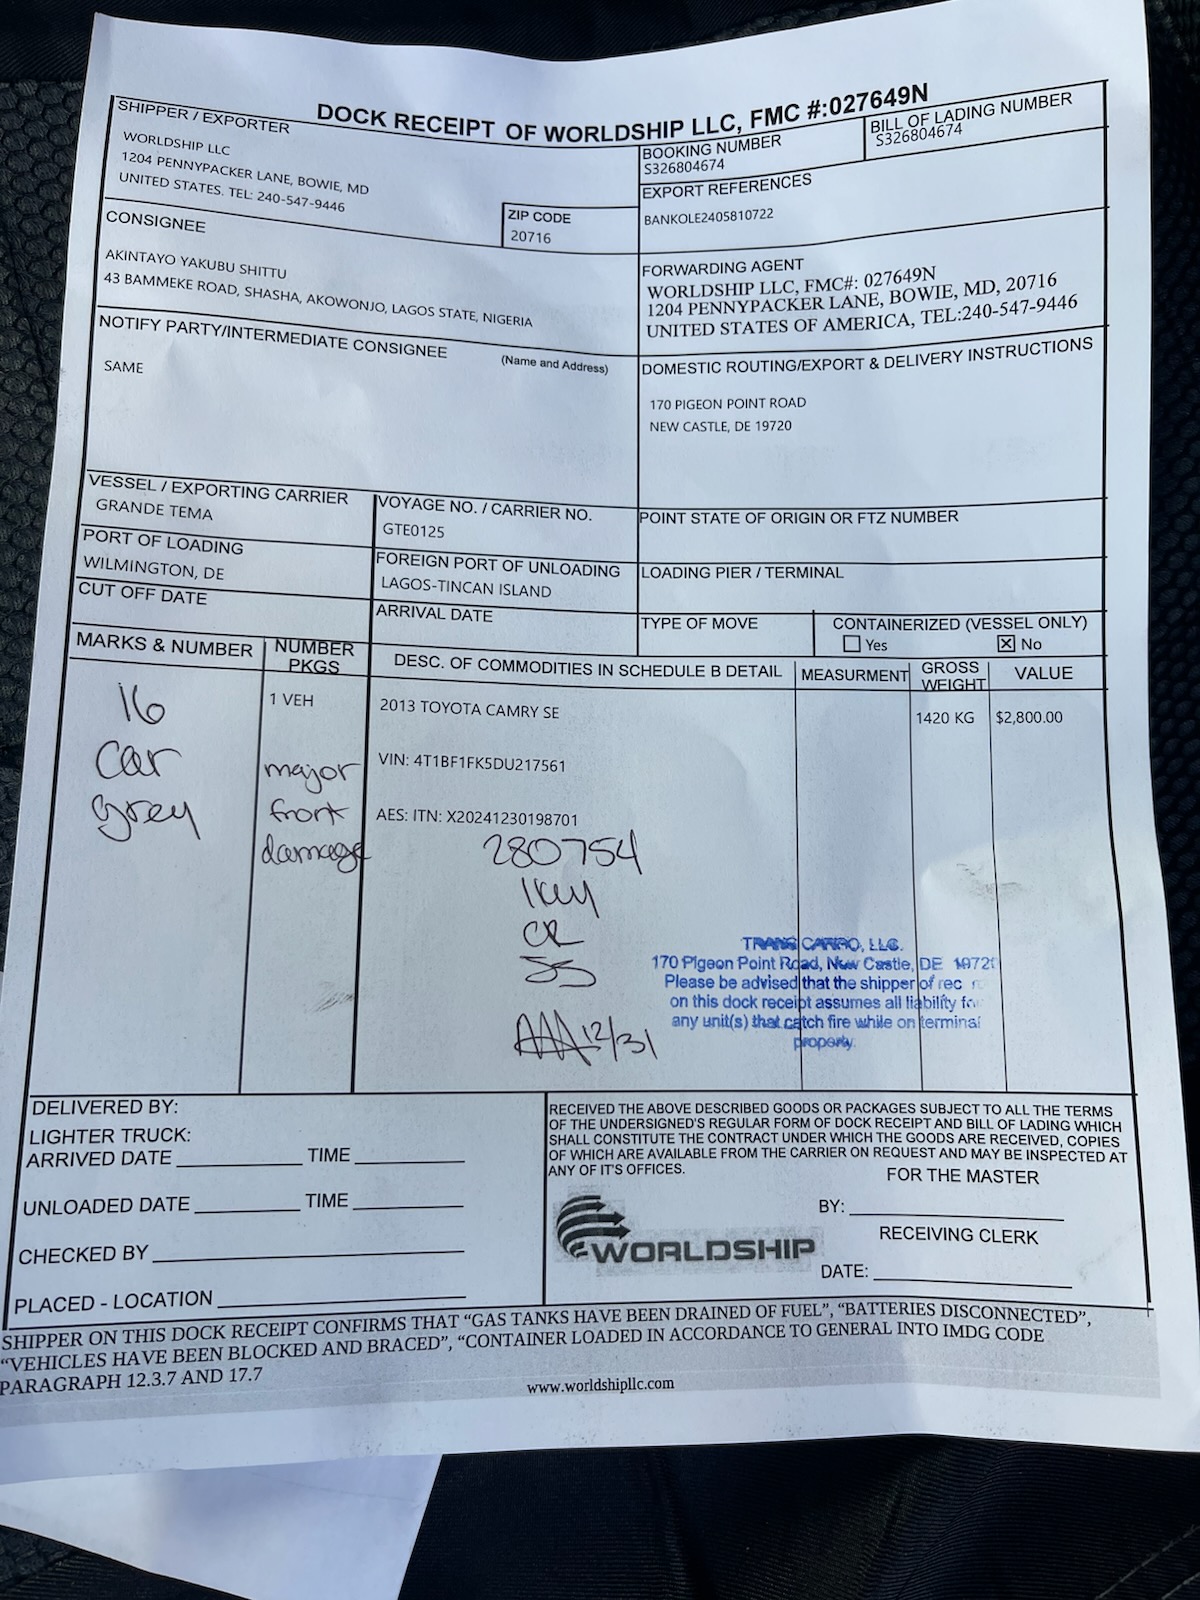 DOCK RECEIPT OF WORLDSHIP LLC, FMC #:027649N
SHIPPER / EXPORTER
WORLDSHIP LLC
1204 PENNYPACKER LANE, BOWIE, MD
UNITED STATES. TEL: 240-547-9446
ZIP CODE
20716
BOOKING NUMBER
S326804674
BILL OF LADING NUMBER
S326804674
EXPORT REFERENCES
BANKOLE2405810722
CONSIGNEE
AKINTAYO YAKUBU SHITTU
43 BAMMEKE ROAD, SHASHA, AKOWONJO, LAGOS STATE, NIGERIA
FORWARDING AGENT
WORLDSHIP LLC, FMC#: 027649N
1204 PENNYPACKER LANE, BOWIE, MD, 20716
UNITED STATES OF AMERICA, TEL:240-547-9446
NOTIFY PARTY/INTERMEDIATE CONSIGNEE
(Name and Address)
SAME
DOMESTIC ROUTING/EXPORT & DELIVERY INSTRUCTIONS
170 PIGEON POINT ROAD
NEW CASTLE, DE 19720
VESSEL / EXPORTING CARRIER
GRANDE TEMA
VOYAGE NO. / CARRIER NO.
GTE0125
POINT STATE OF ORIGIN OR FTZ NUMBER
PORT OF LOADING
WILMINGTON, DE
FOREIGN PORT OF UNLOADING
LAGOS-TINCAN ISLAND
LOADING PIER / TERMINAL
CUT OFF DATE
ARRIVAL DATE
TYPE OF MOVE
CONTAINERIZED (VESSEL ONLY)
Yes
No
MARKS & NUMBER
NUMBER
PKGS
DESC. OF COMMODITIES IN SCHEDULE B DETAIL
MEASURMENT
GROSS
WEIGHT
VALUE
16
car
grey
1 VEH
major
front
damage
2013 TOYOTA CAMRY SE
VIN: 4T1BF1FK5DU217561
AES: ITN: X20241230198701
280754
1key
CR
SS
12/31
1420 KG
$2,800.00
TRANS CARGO, LLC.
170 Pigeon Point Road, New Castle, DE 19720
Please be advised that the shipper of rec
on this dock receipt assumes all liability for
any unit(s) that catch fire while on terminal
property.
DELIVERED BY:
LIGHTER TRUCK:
ARRIVED DATE TIME
UNLOADED DATE TIME
CHECKED BY
PLACED - LOCATION
RECEIVED THE ABOVE DESCRIBED GOODS OR PACKAGES SUBJECT TO ALL THE TERMS
OF THE UNDERSIGNED'S REGULAR FORM OF DOCK RECEIPT AND BILL OF LADING WHICH
SHALL CONSTITUTE THE CONTRACT UNDER WHICH THE GOODS ARE RECEIVED, COPIES
OF WHICH ARE AVAILABLE FROM THE CARRIER ON REQUEST AND MAY BE INSPECTED AT
ANY OF IT'S OFFICES.
FOR THE MASTER
BY:
RECEIVING CLERK
DATE:
WORLDSHIP
SHIPPER ON THIS DOCK RECEIPT CONFIRMS THAT “GAS TANKS HAVE BEEN DRAINED OF FUEL”, “BATTERIES DISCONNECTED”,
“VEHICLES HAVE BEEN BLOCKED AND BRACED”, “CONTAINER LOADED IN ACCORDANCE TO GENERAL INTO IMDG CODE
PARAGRAPH 12.3.7 AND 17.7
www.worldshipllc.com